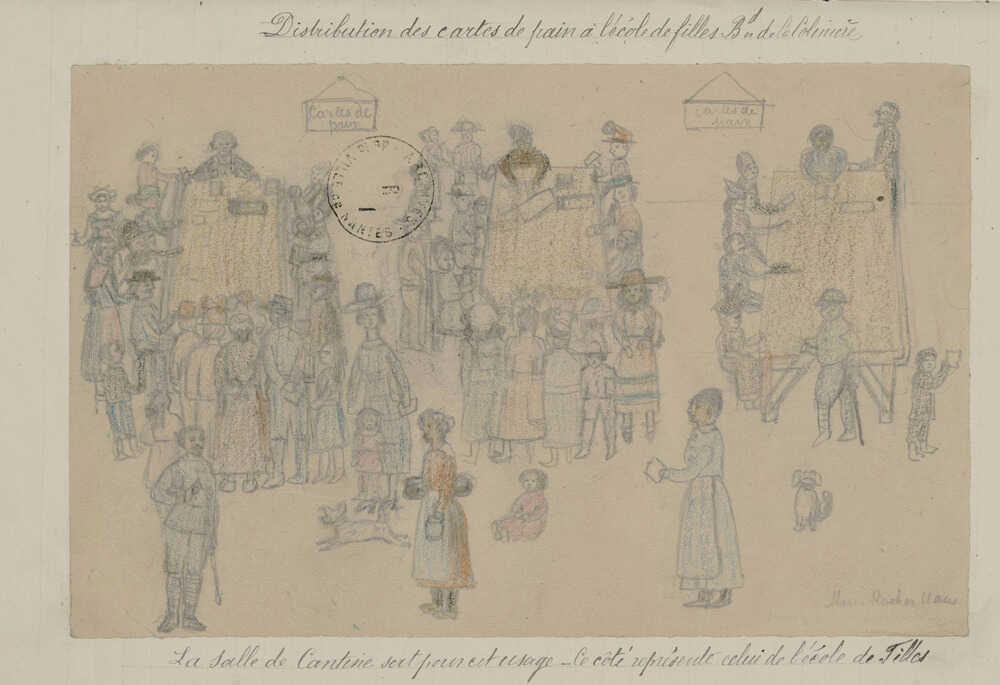 Distribution des cartes de pain à l'école de filles Bd de la Colinière
Cartes de
pain
cartes de
pain
ARCHIVES
VILLE DE NANTES
La salle de Cantine sert pour cet usage - Ce côté représente celui de l'école de Filles
11 ans